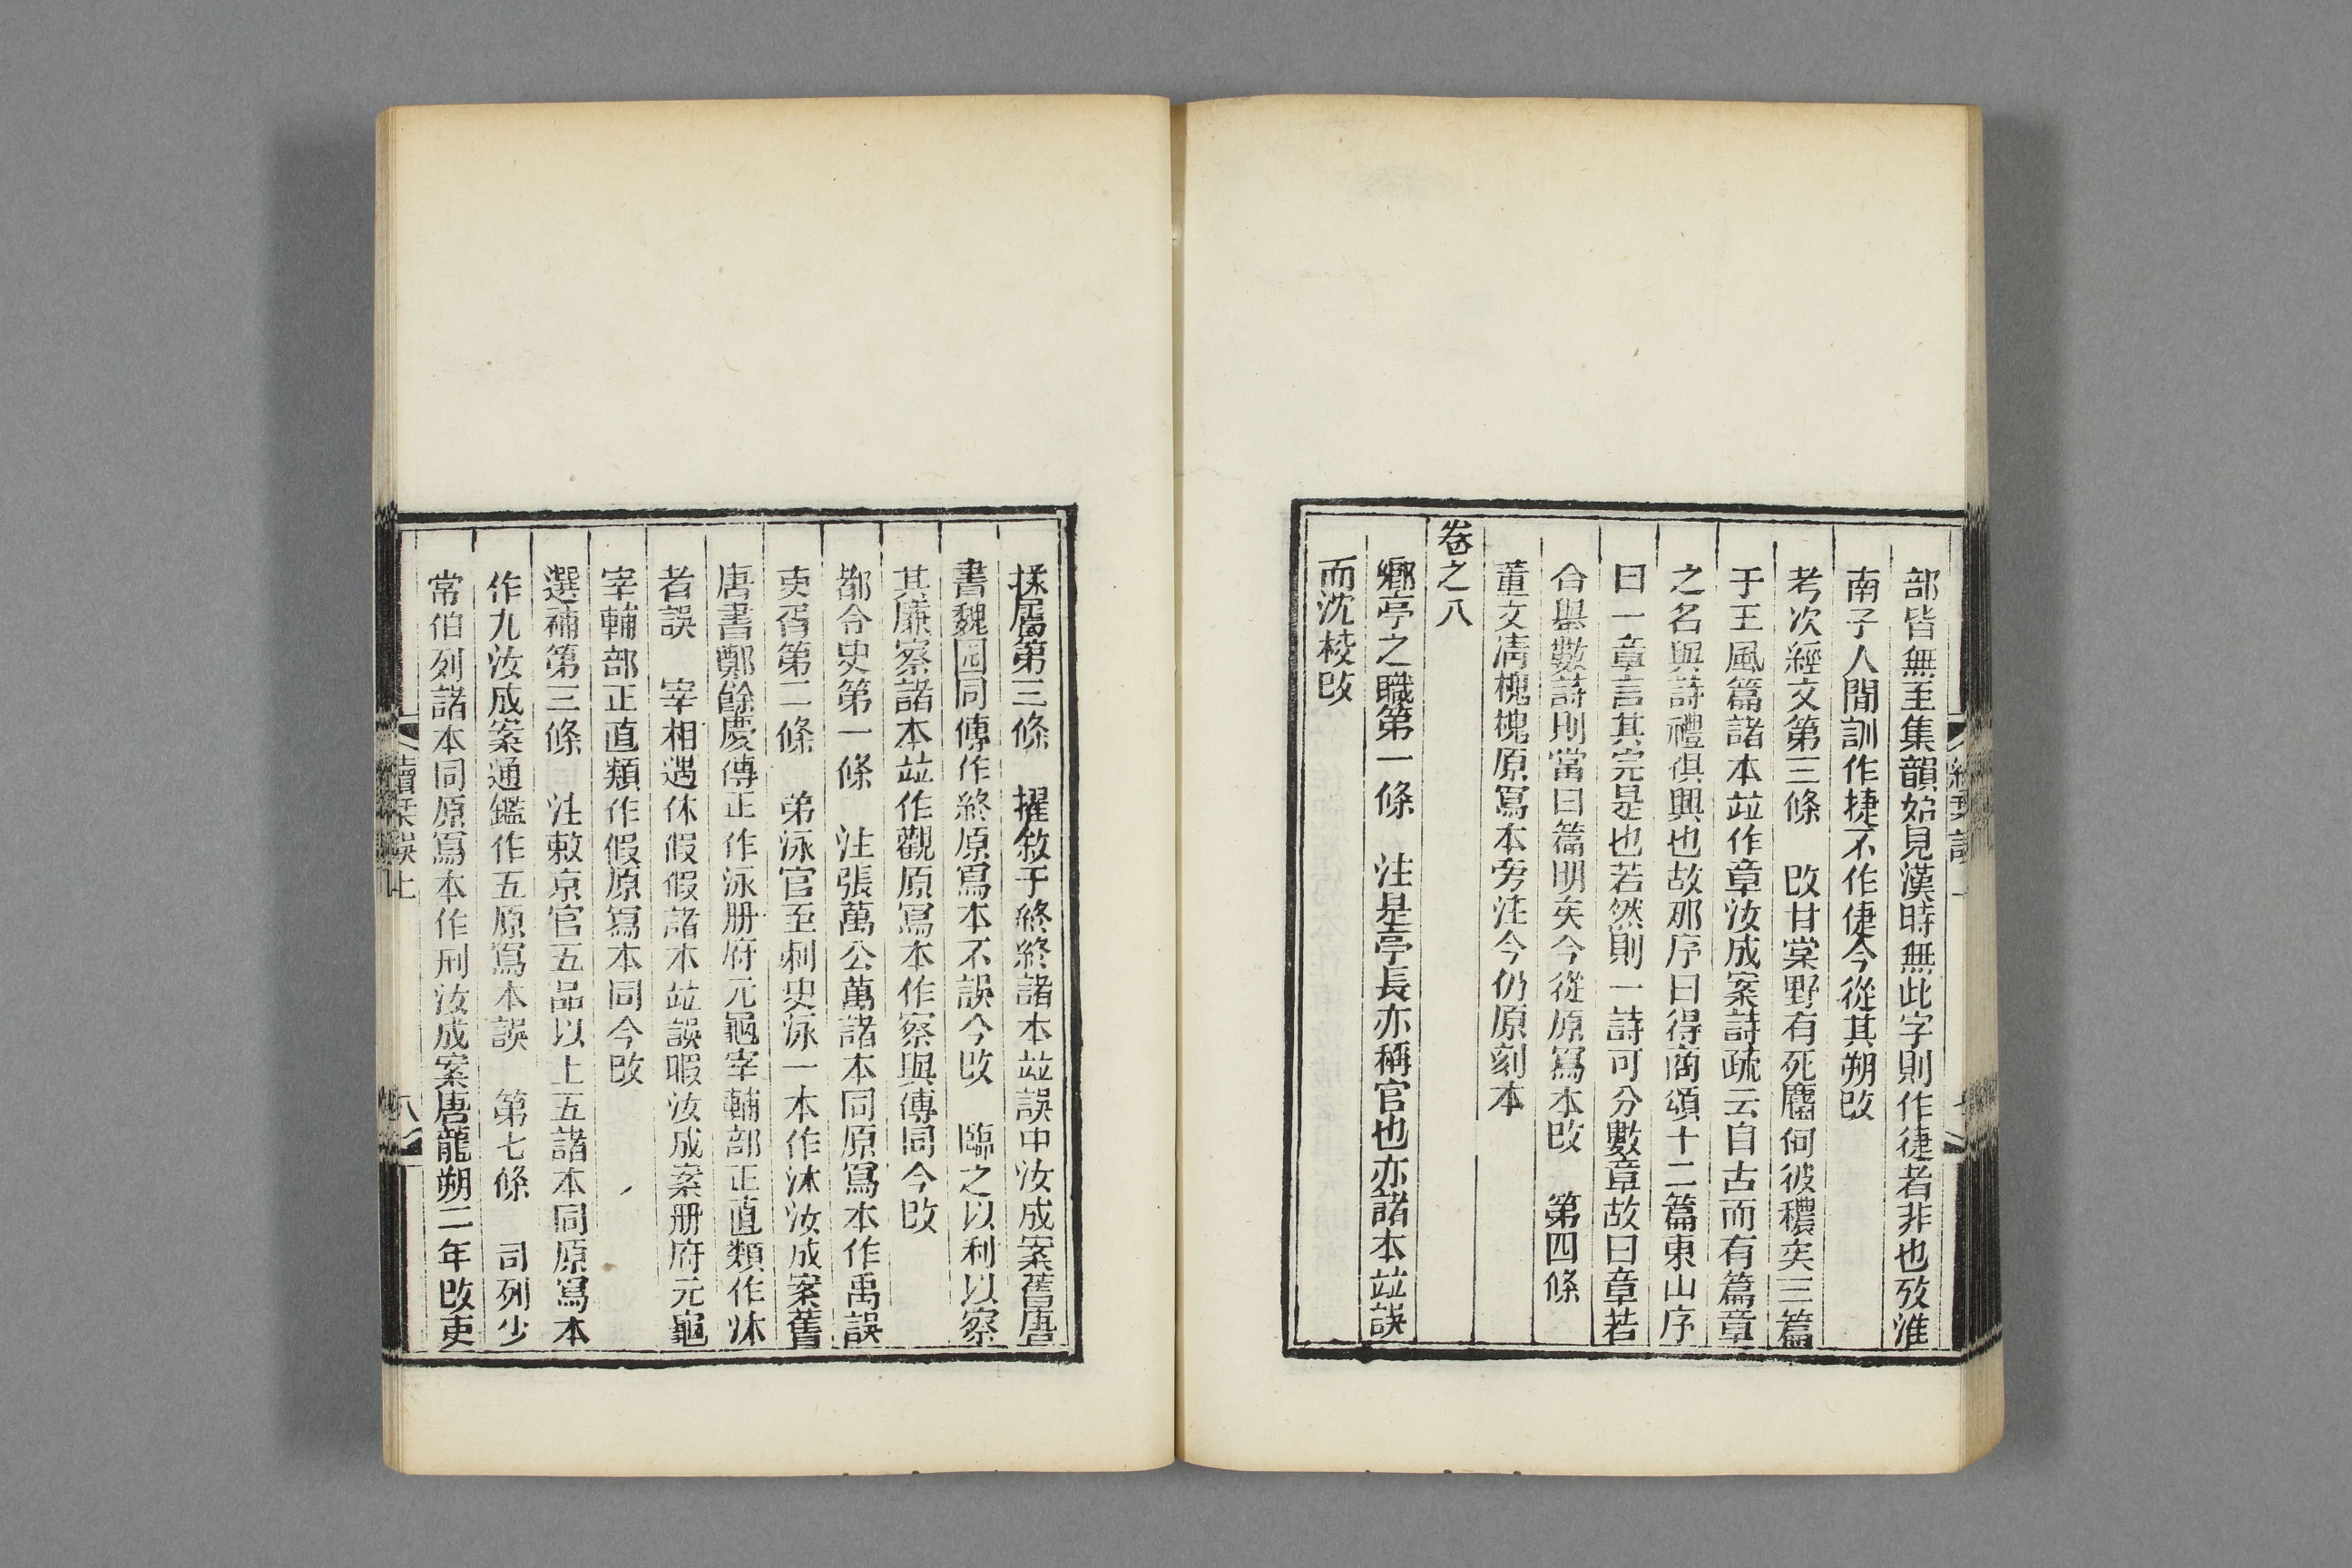 部皆無至集韻始見漢時無此字則作㨗者非也攷淮
南子人閒訓作捷不作倢今從其朔改
考次經文第三條　改甘棠野有死麕何彼穠矣三篇
于王風篇諸本竝作章汝成案詩疏云自古而有篇章
之名與詩禮俱興也故那序曰得商頌十二篇東山序
曰一章言其完是也若然則一詩可分數章故曰章若
合與數詩則當曰篇明矣今從原寫本改　第四條
董文淸槐槐原寫本旁注今仍原刻本
卷之八
鄉亭之職第一條　注是亭長亦稱官也亦諸本竝誤
而沈校改
掾屬第三條　擢敘于終終諸本竝誤中汝成案舊唐
書魏囦同傳作終原寫本不誤今改　臨之以利以察
其廉察諸本竝作觀原寫本作察與傳同今改
都令史第一條　注張萬公萬諸本同原寫本作禹誤
吏胥第二條　弟泳官至刺史泳一本作沐汝成案舊
唐書鄭餘慶傳正作泳册府元龜宰輔部正直類作沐
者誤　宰相遇休假假諸本竝誤暇汝成案册府元龜
宰輔部正直類作假原寫本同今改
選補第三條　注敕京官五品以上五諸本同原寫本
作九汝成案通鑑作五原寫本誤　第七條　司列少
常伯列諸本同原寫本作刑汝成案唐龍朔二年改吏
續栞誤上
八